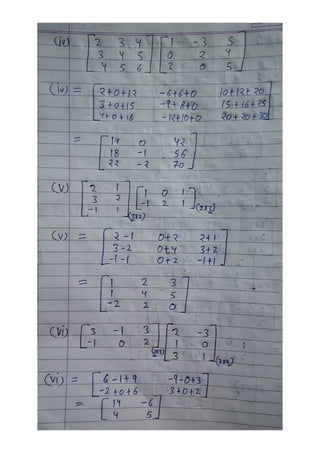 (iv) [2 3 4 / 3 4 5 / 4 5 6] [1 -3 5 / 0 2 4 / 3 0 5]
(iv) = [2+0+12 -6+6+0 10+12+20 / 3+0+15 -9+8+0 15+16+25 / 4+0+18 -12+10+0 20+20+30]
= [14 0 42 / 18 -1 56 / 22 -2 70]
(v) [2 1 / 3 2 / -1 1] (3x2) [1 0 1 / -1 2 1] (2x3)
(v) = [2-1 0+2 2+1 / 3-2 0+4 3+2 / -1-1 0+2 -1+1]
= [1 2 3 / 1 4 5 / -2 2 0]
(vi) [3 -1 3 / -1 0 2] (2x3) [2 -3 / 1 0 / 3 1]
(vi) = [6-1+9 -9-0+3 / -2+0+6 3+0+2]
= [14 -6 / 4 5]